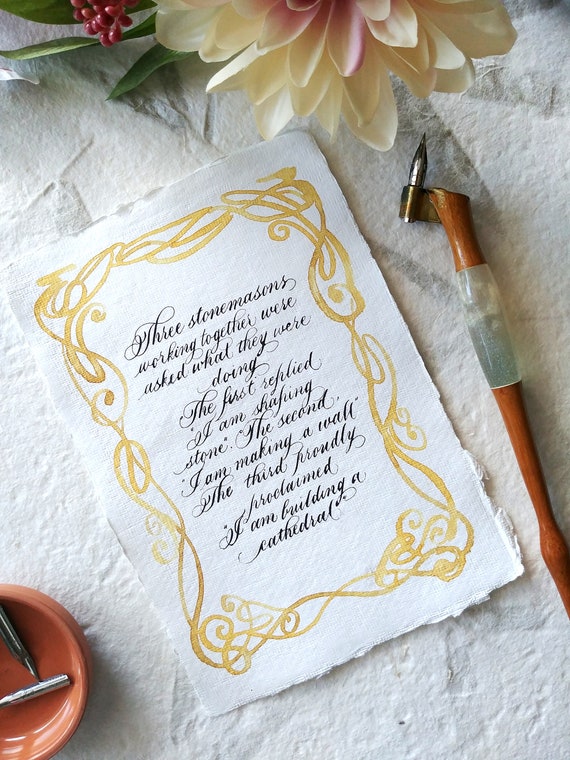 Three stonemasons
working together were
asked what they were
doing
The first replied
"I am shaping
stone". "The second,
"I am making a wall"
The third proudly
proclaimed
"I am building a
cathedral"